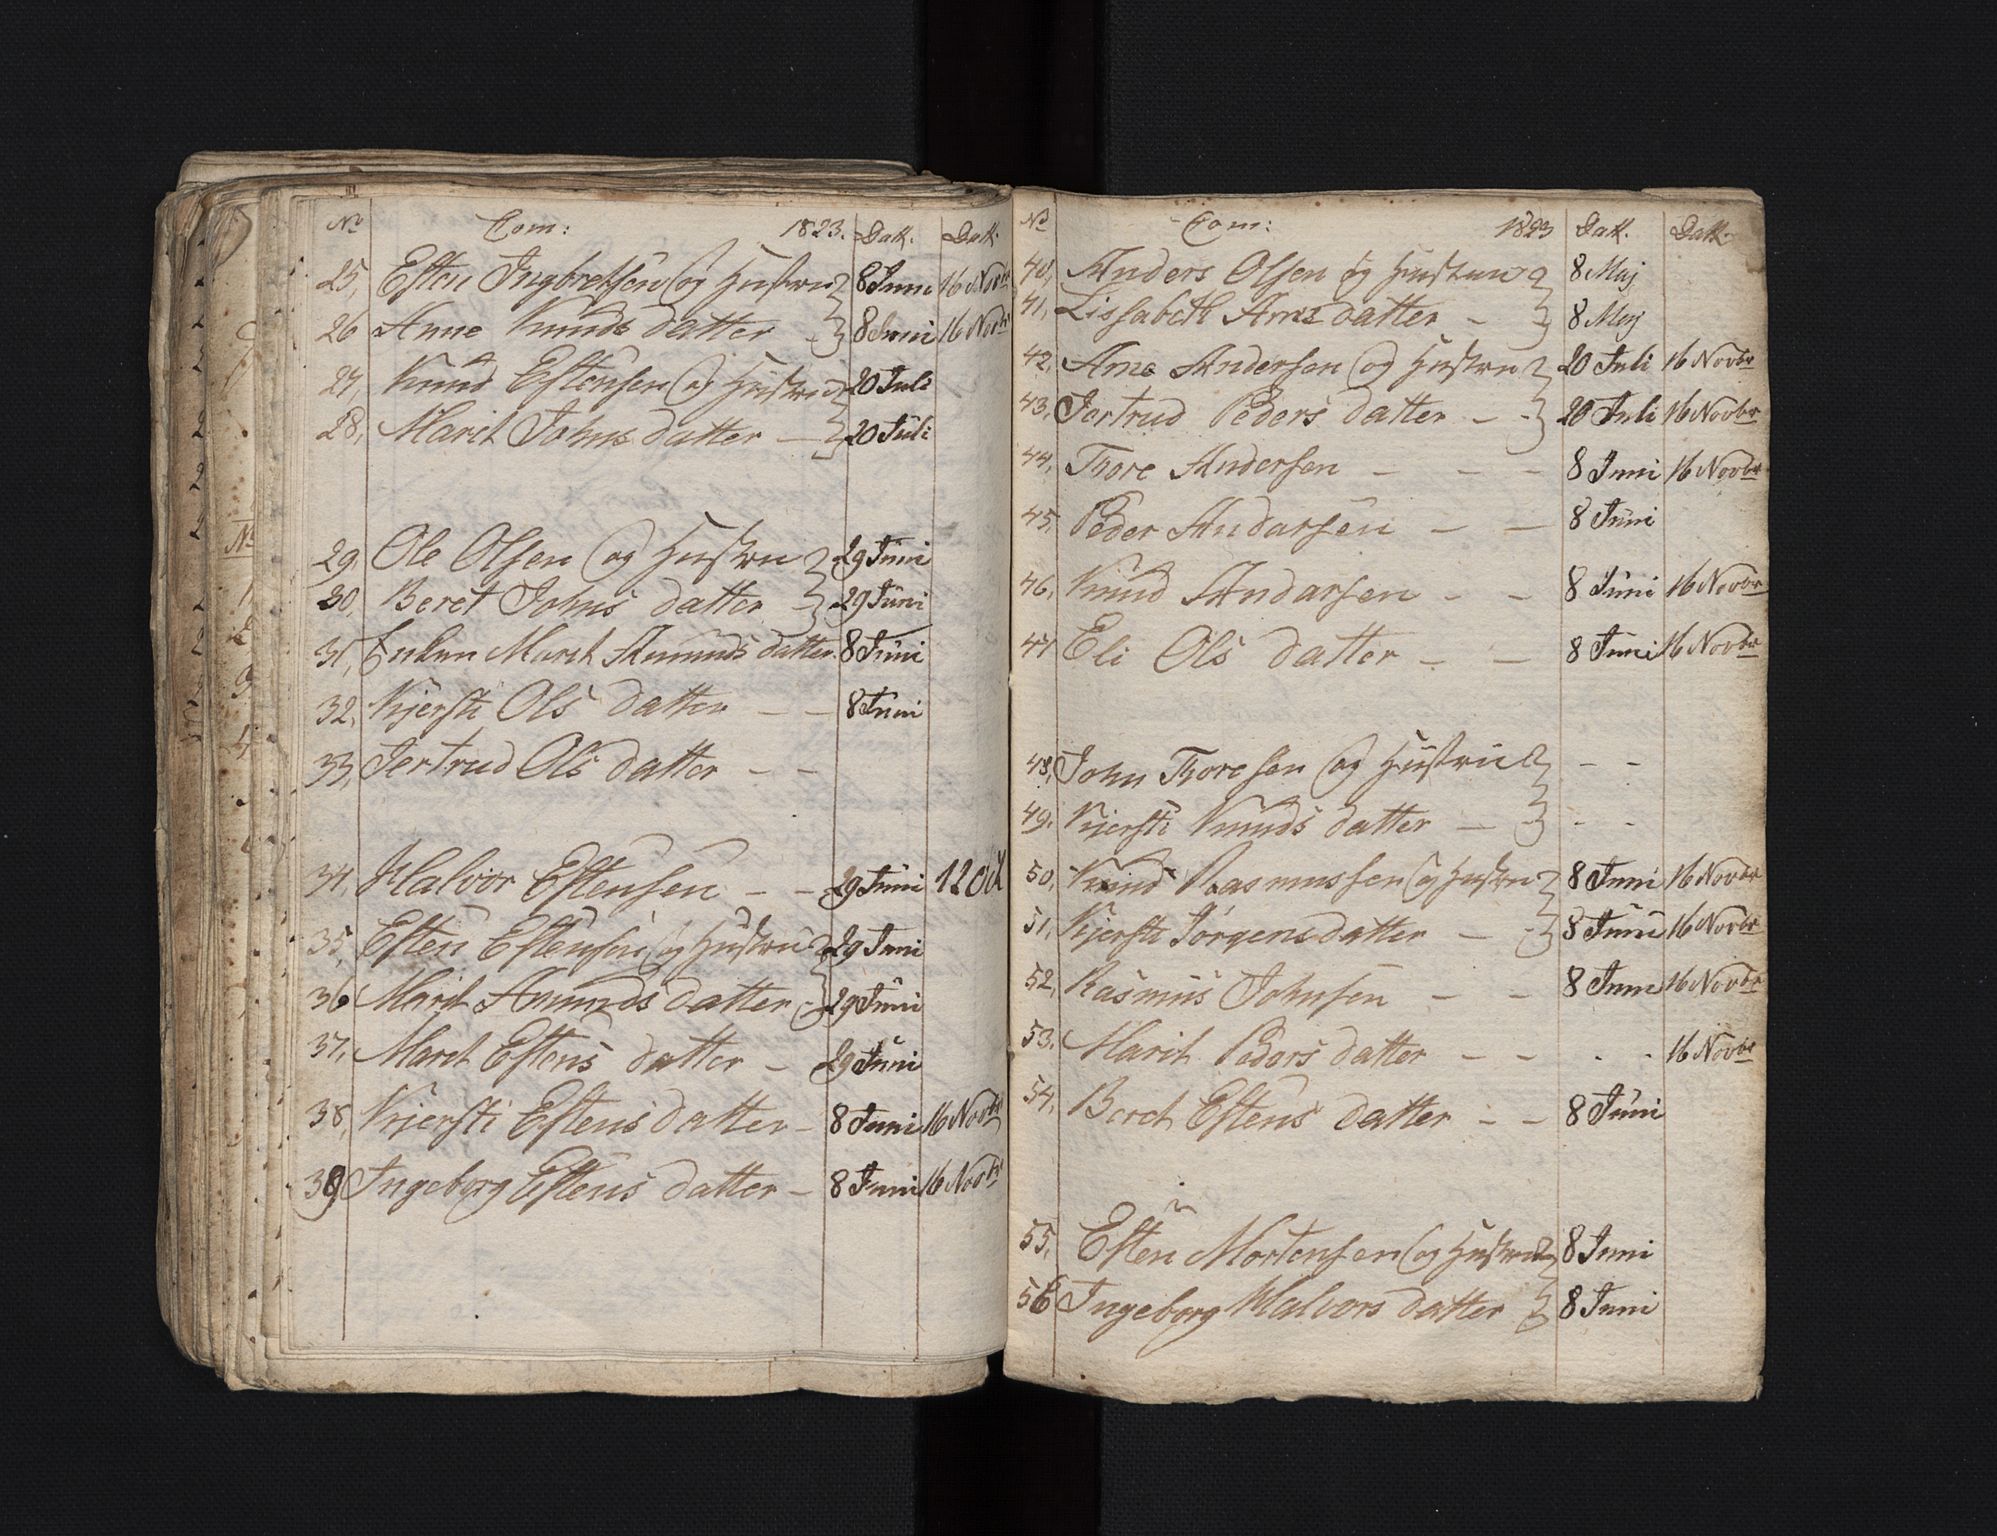 No Com: 1823. Datt. Datt.
25, Esten Ingbretsen og Hustru 8 Juni 16 Novbr
26 Anne Knuds datter - 8 Juni 16 Novbr
27, Knud Estensen og Hustru 20 Juli
28, Marit Johns datter - 20 Juli
29, Ole Olsen og Hustru 29 Juni
30, Beret Johns datter - 29 Juni
31, Enken Marit Amunds datter. 8 Juni
32, Kjersti Ols datter - - 8 Juni
33, Jertrud Ols datter - -
34, Halvor Estensen - - 29 Juni 12 Oct
35, Esten Estensen og Hustru 29 Juni
36 Marit Amunds datter - 29 Juni
37, Marit Estens datter - 29 Juni
38, Kjersti Estens datter - 8 Juni 16 Novbr
39 Ingeborg Estens datter - 8 Juni 16 Novbr
No Com: 1823 Datt. Datt.
40, Anders Olsen og Hustru 8 Maj
41, Lissabeth Arns datter - 8 Maj
42, Arne Andersen og Hustru 20 Juli 16 Novbr
43, Jertrud Peders datter - - 20 Juli 16 Novbr
44, Thore Andersen - - - 8 Juni 16 Novbr
45, Peder Andarsen - - 8 Juni
46, Knud Andarsen - - 8 Juni 16 Novbr
47 Eli Ols datter - - 8 Juni 16 Novbr
48, John Thoresen og Hustru - -
49, Kjersti Knuds datter - - -
50, Knud Rasmussen og Hustru 8 Juni 16 Novbr
51, Kjersti Jörgens datter - - 8 Juni 16 Novbr
52, Rasmus Johnsen - - 8 Juni 16 Novbr
53, Marit Peders datter - - - - 16 Novbr
54, Beret Estens datter - - 8 Juni
55, Esten Mortensen og Hustru 8 Juni
56 Ingeborg Halvors datter 8 Juni